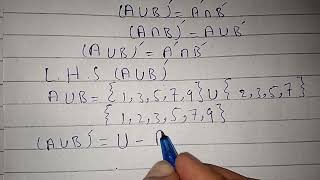 (A∪B)′ = A′∩B′
(A∩B)′ = A′∪B′
(A∪B)′ = A′∩B′
L.H.S (A∪B)′
A∪B = {1,3,5,7,9} ∪ {2,3,5,7}
{1,2,3,5,7,9}
(A∪B)′ = U -